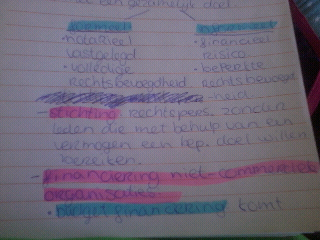 een gezamelijk doel
formeel informeel
· notarieel · financieel
vastgelegd risico
· volledige - beperkte
rechtsbevoegdheid rechtsbevoegd
heid
- stichting rechtspers. zonder
leden die met behulp van een
vermogen een bep. doel willen
bereiken.
- financiering niet-commerciele
organisaties
· budgetfinanciering komt